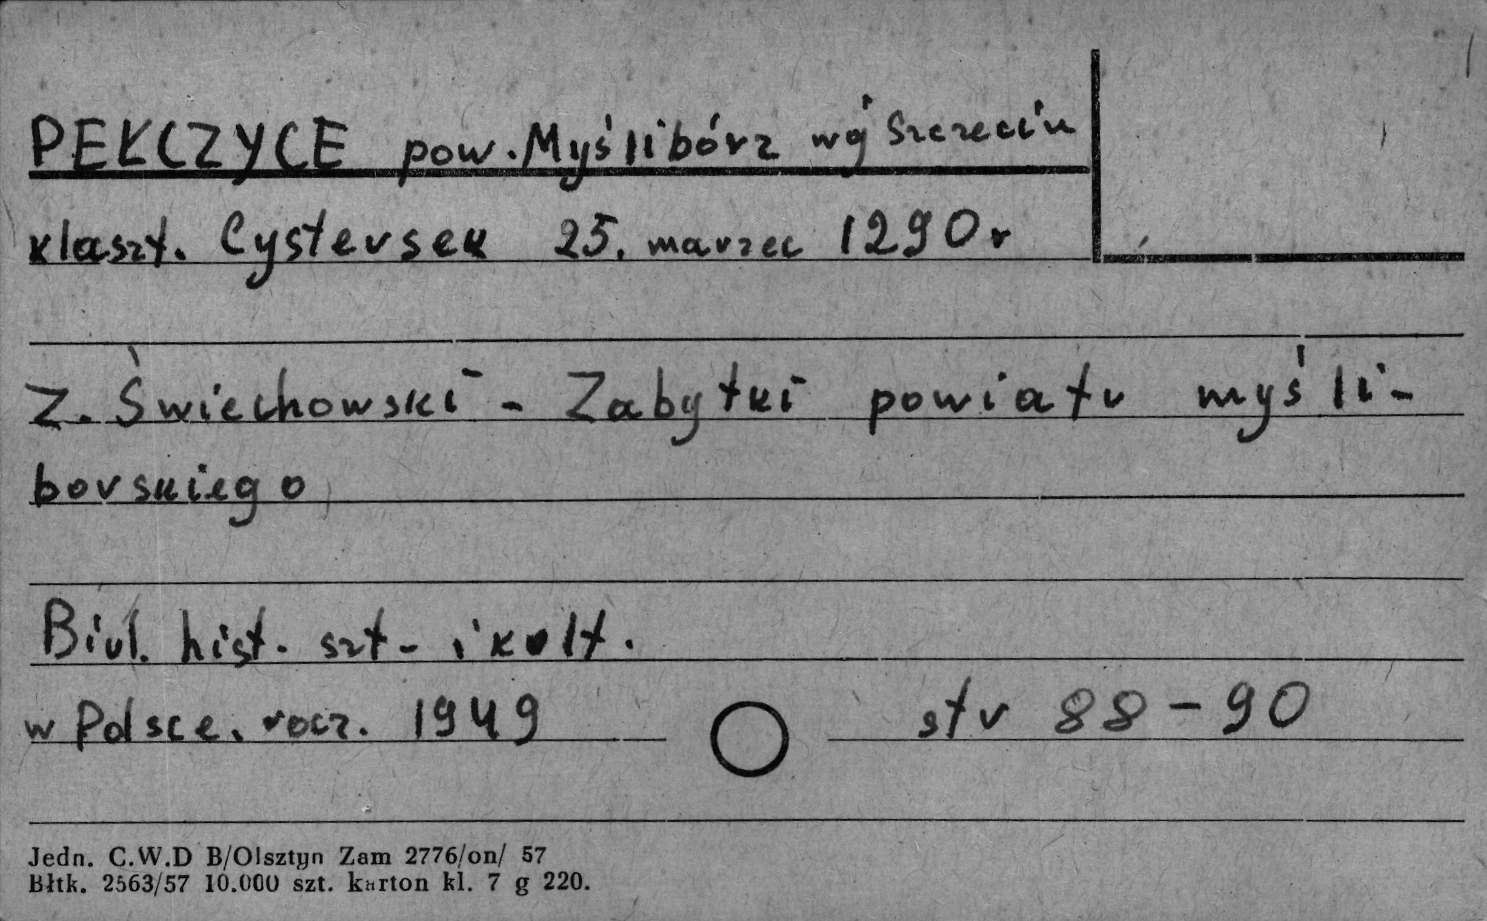 PEŁCZYCE pow. Myślibórz wój Szczecin
klaszt. Cystersek 25. marzec 1290 r
Z. Świechowski - Zabytki powiatu myśli-
borskiego
Biul. hist. szt. i kult.
w Polsce. rocz. 1949 str 88-90
Jedn. C.W.D B/Olsztyn Zam 2776/on/ 57
Błtk. 2563/57 10.000 szt. karton kl. 7 g 220.